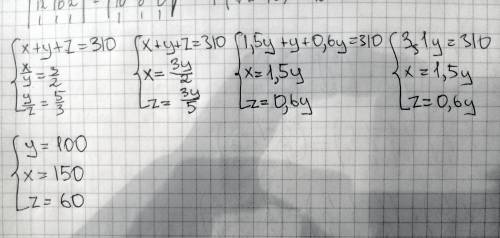 |12 102| = |10 0 0|
x+y+z=310
x/y=3/2
y/z=5/3
x+y+z=310
x=3y/2
z=3y/5
1,5y+y+0,6y=310
x=1,5y
z=0,6y
3,1y=310
x=1,5y
z=0,6y
y=100
x=150
z=60